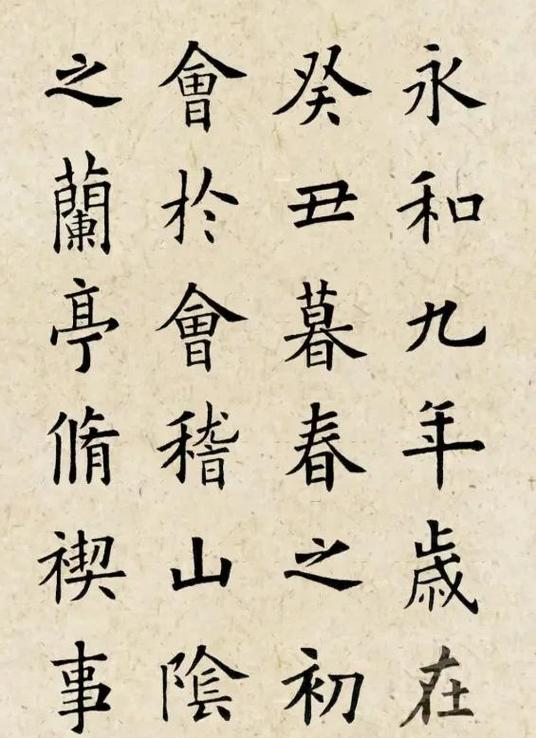 永和九年歲在
癸丑暮春之初
會於會稽山陰
之蘭亭脩禊事